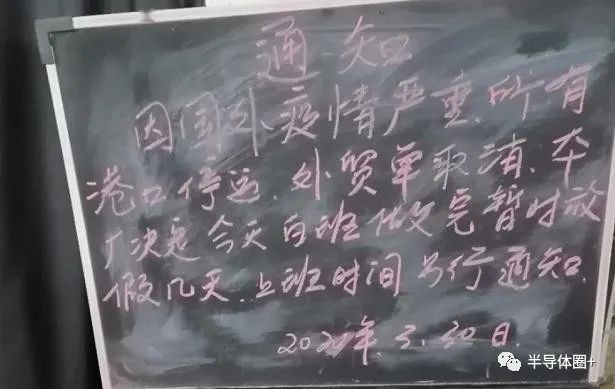 通知
因国外疫情严重,所有
港口停运、外贸单取消、本
厂决定今天白班做完暂时放
假几天.上班时间另行通知.
2020年.3.30日.
半导体圈+